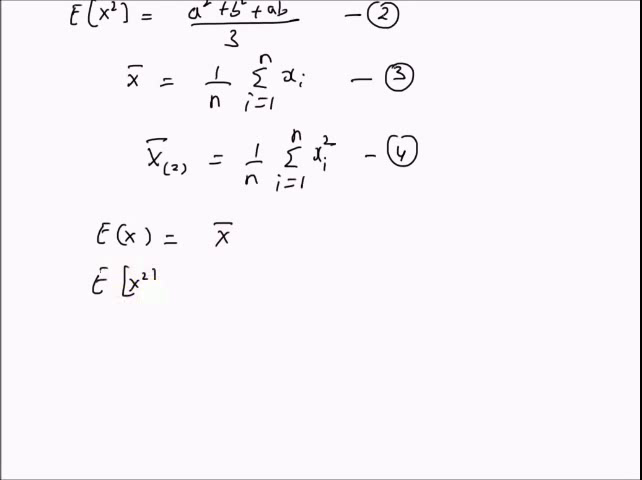 E[x²] = a² + b² + ab / 3 — ②
x̄ = 1/n n∑i=1 xᵢ — ③
X̄₍₂₎ = 1/n n∑i=1 xᵢ² — ④
E(x) = x̄
E [x²]